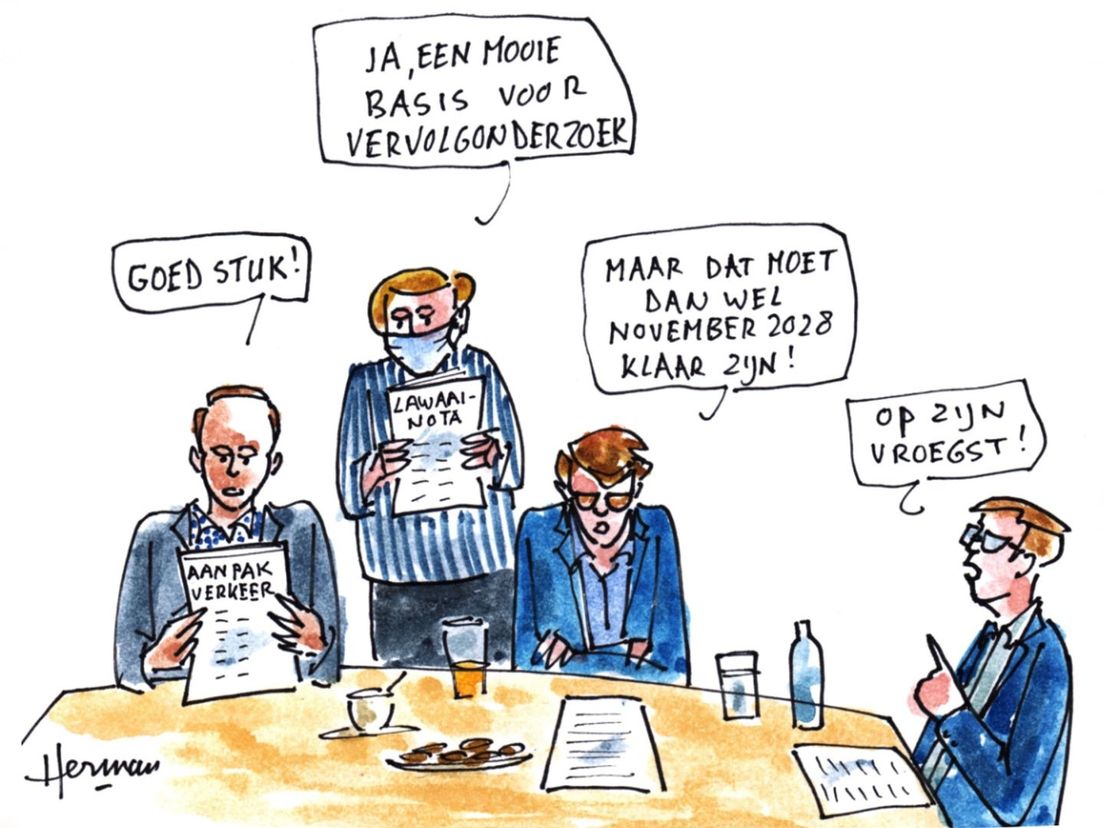 JA, EEN MOOIE
BASIS VOOR
VERVOLGONDERZOEK
GOED STUK!
MAAR DAT MOET
DAN WEL
NOVEMBER 2028
KLAAR ZIJN!
OP ZIJN
VROEGST!
LAWAAI-
NOTA
AANPAK
VERKEER
Herman